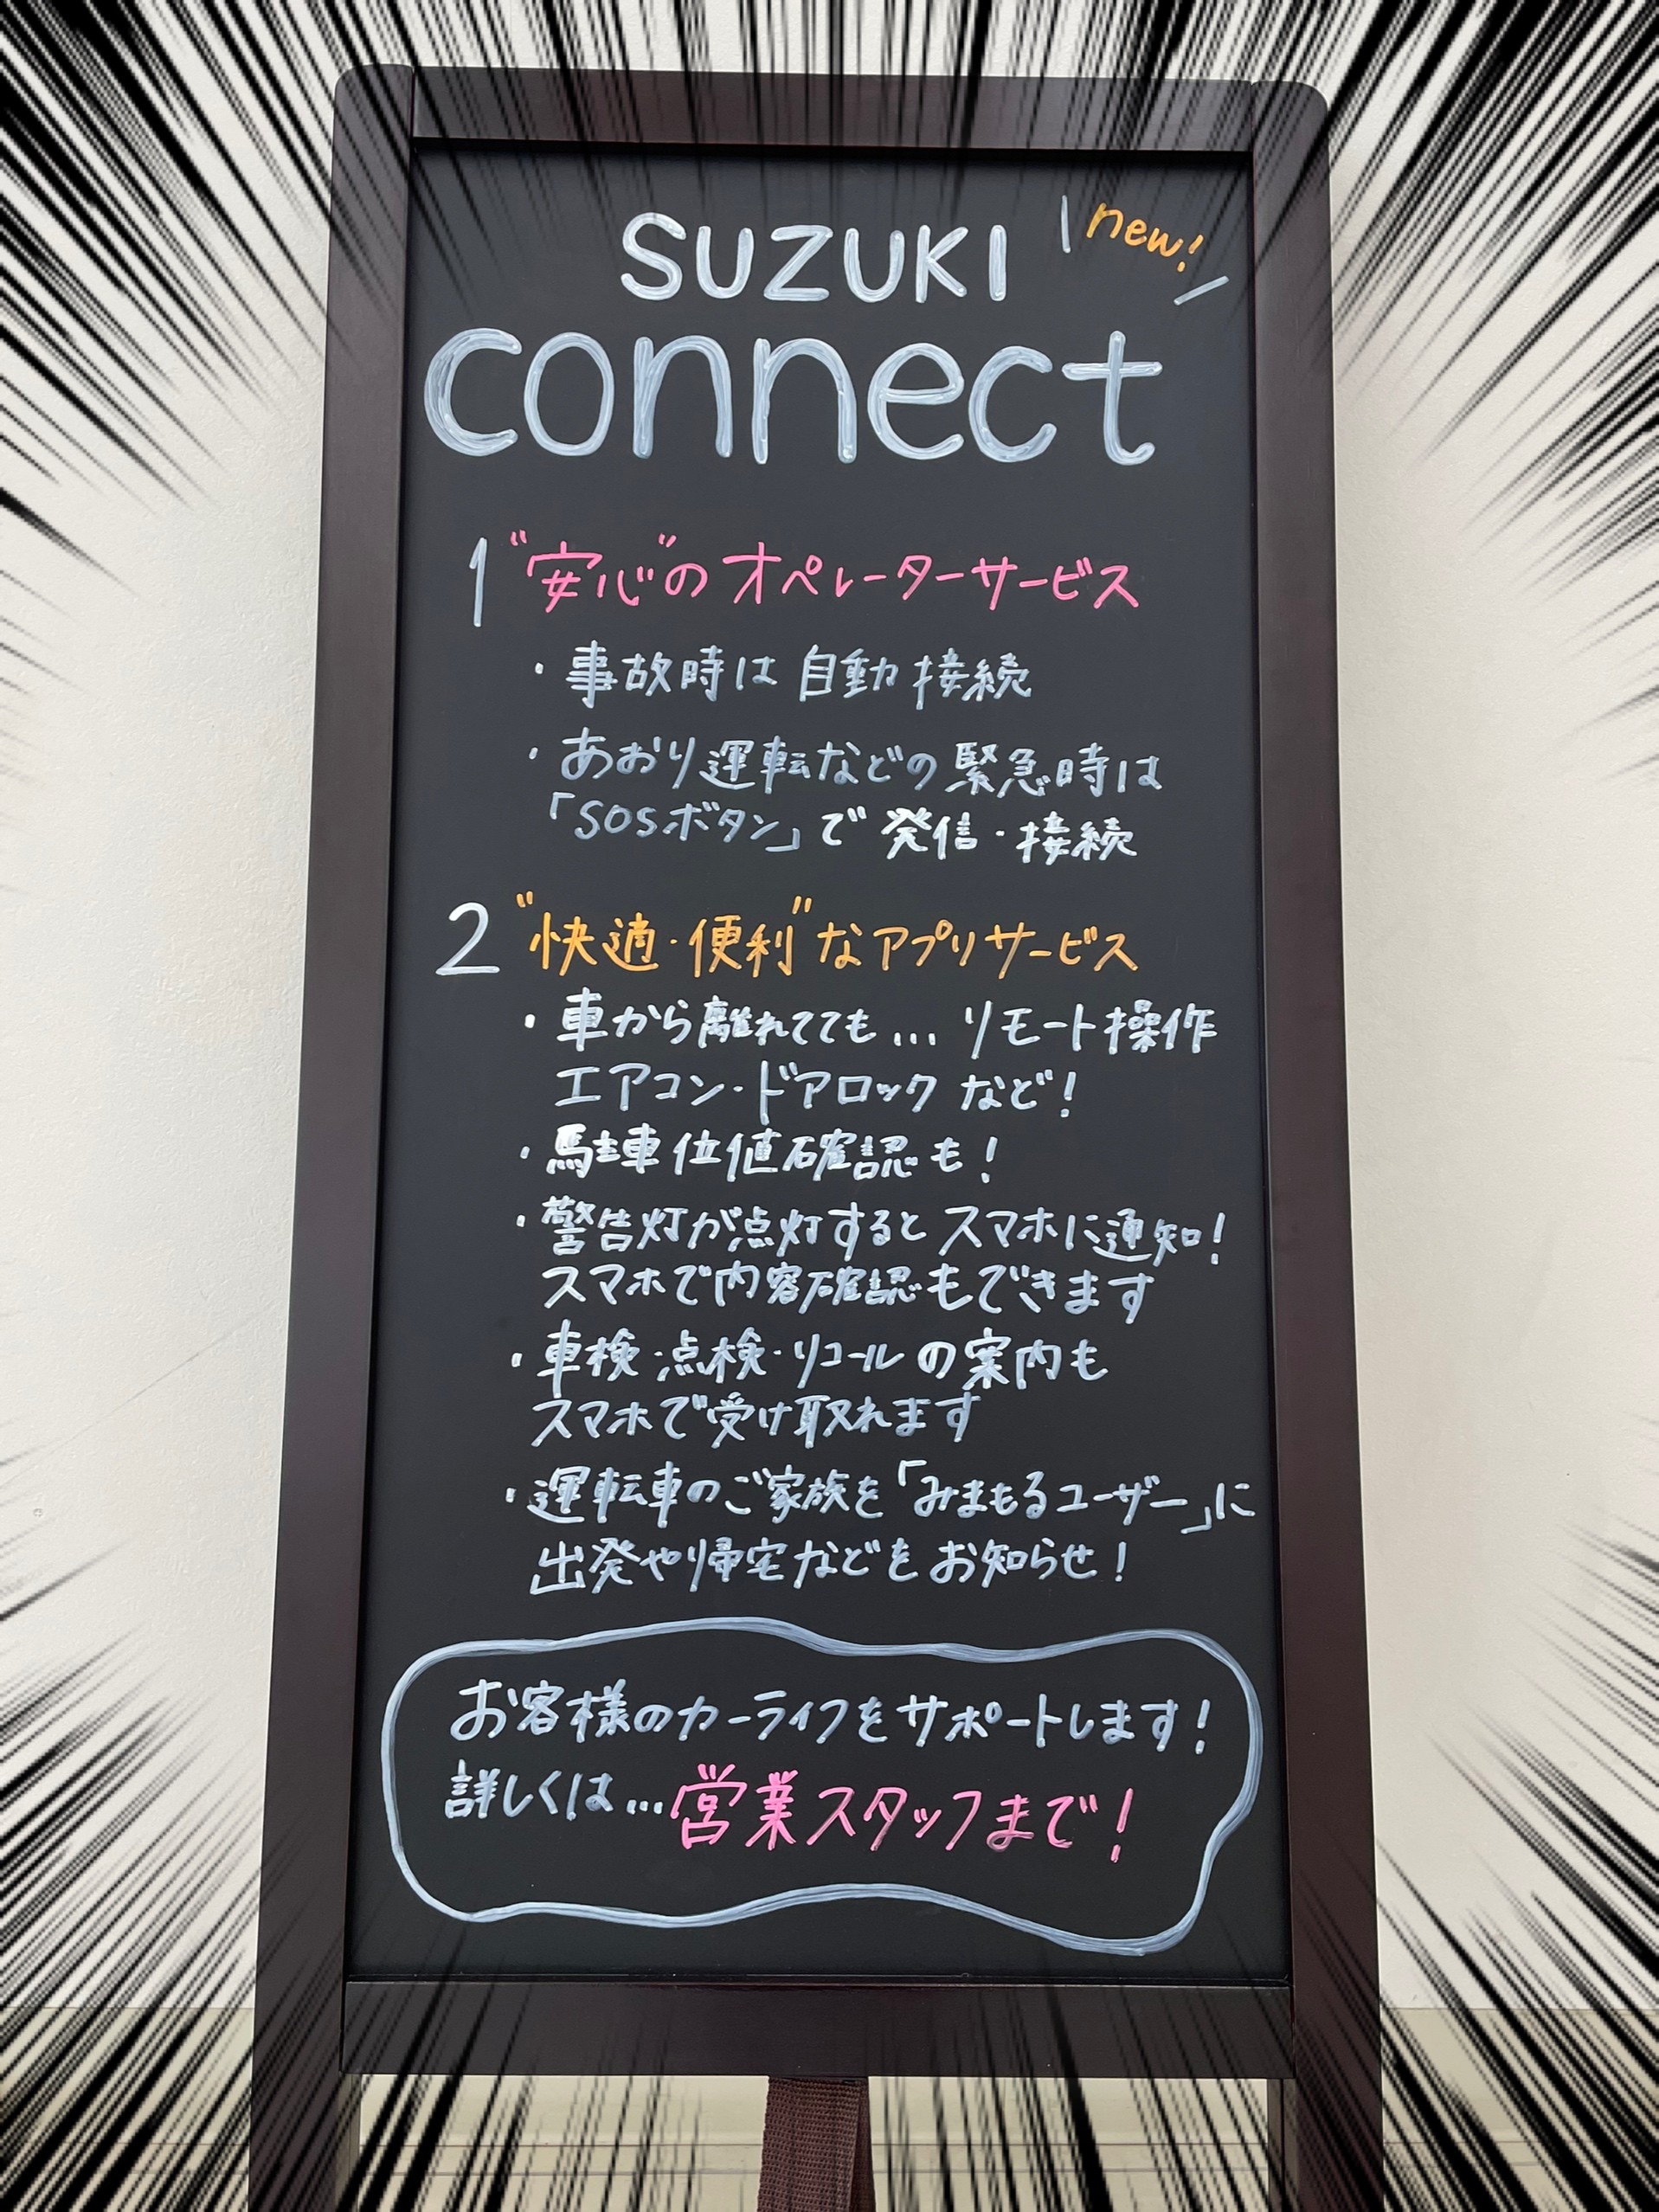 SUZUKI new!
connect
1 "安心"のオペレーターサービス
・事故時は自動接続
・あおり運転などの緊急時は
「SOSボタン」で発信・接続
2 "快適・便利"なアプリサービス
・車から離れてても…リモート操作
エアコン・ドアロックなど!
・駐車位値確認も!
・警告灯が点灯するとスマホに通知!
スマホで内容確認もできます
・車検・点検・リコールの案内も
スマホで受け取れます
・運転車のご家族を「みまもるユーザー」に
出発や帰宅などをお知らせ!
お客様のカーライフをサポートします!
詳しくは…営業スタッフまで!